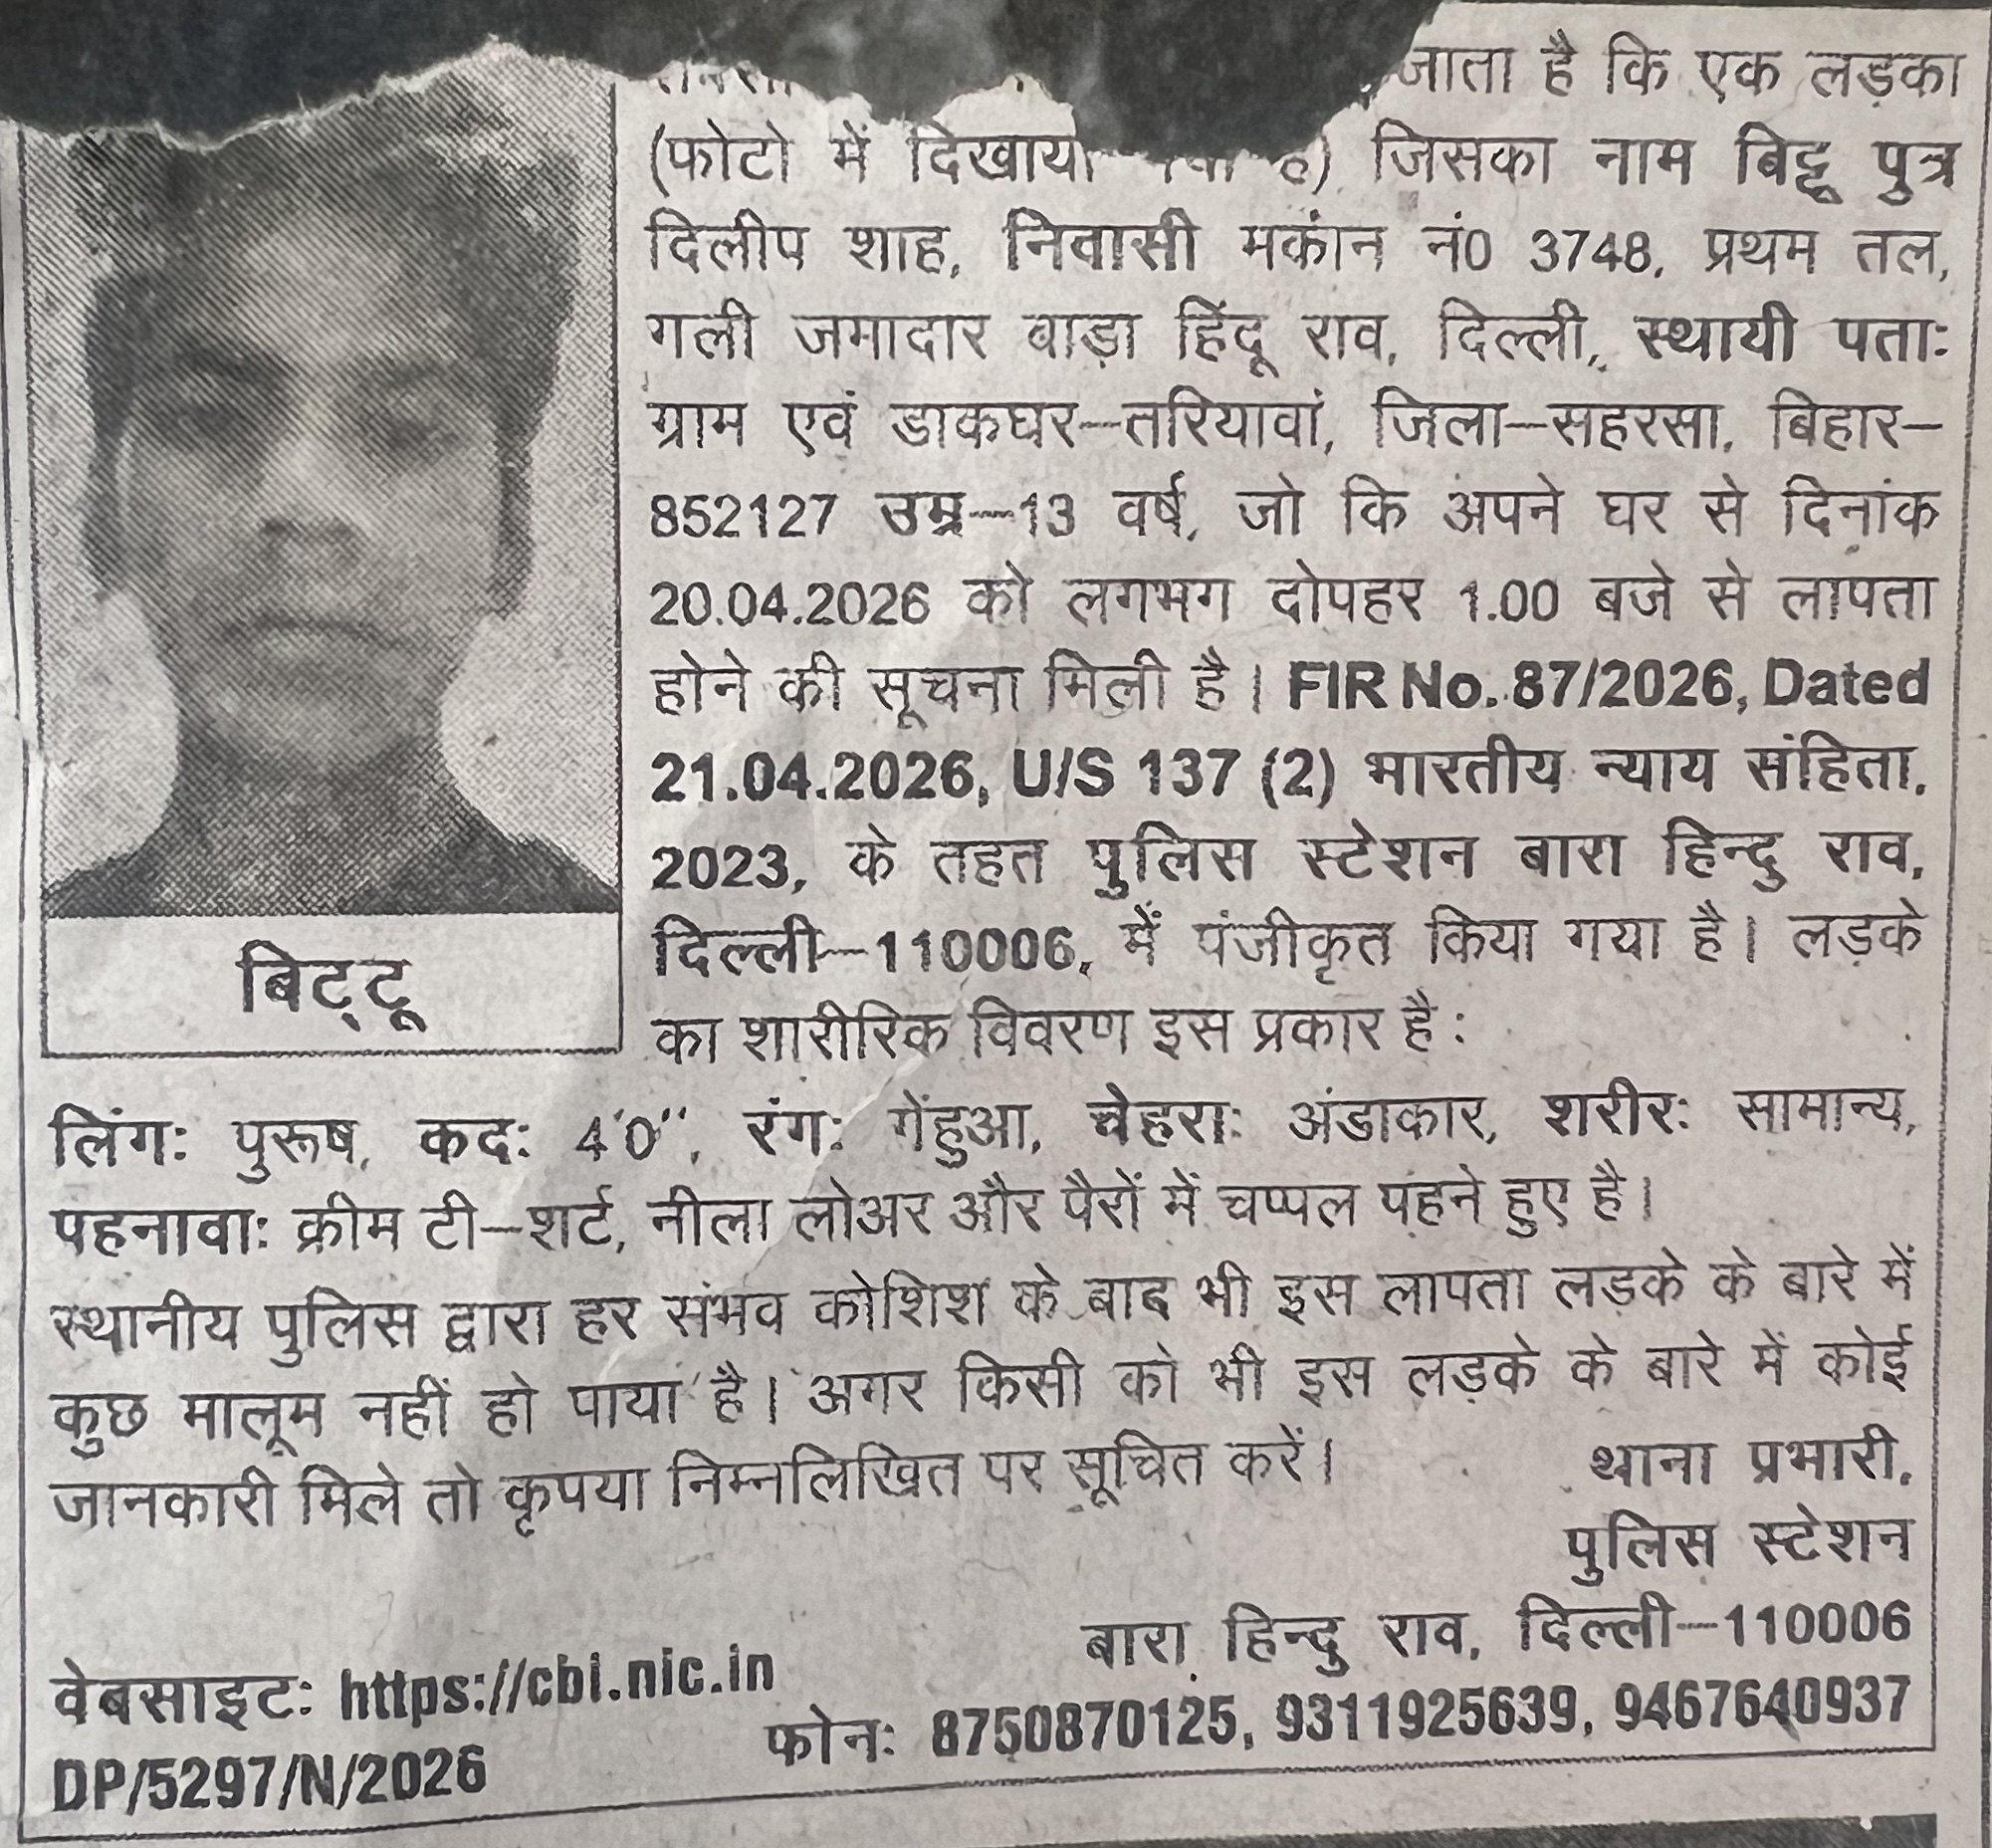 जाता है कि एक लड़का
(फोटो में दिखाया जिसका नाम बिट्टू पुत्र
दिलीप शाह, निवासी मकान नं0 3748, प्रथम तल,
गली जमादार बाड़ा हिंदू राव, दिल्ली, स्थायी पताः
ग्राम एवं डाकघर–तरियावां, जिला–सहरसा, बिहार–
852127 उम्र–13 वर्ष, जो कि अपने घर से दिनांक
20.04.2026 को लगभग दोपहर 1.00 बजे से लापता
होने की सूचना मिली है। FIR No. 87/2026, Dated
21.04.2026, U/S 137 (2) भारतीय न्याय संहिता,
2023, के तहत पुलिस स्टेशन बारा हिन्दु राव,
दिल्ली–110006, में पंजीकृत किया गया है। लड़के
का शारीरिक विवरण इस प्रकार है :
बिट्टू
लिंगः पुरूष, कदः 4'0'', रंगः गेंहुआ, चेहराः अंडाकार, शरीरः सामान्य,
पहनावाः क्रीम टी–शर्ट, नीला लोअर और पैरों में चप्पल पहने हुए है।
स्थानीय पुलिस द्वारा हर संभव कोशिश के बाद भी इस लापता लड़के के बारे में
कुछ मालूम नहीं हो पाया है। अगर किसी को भी इस लड़के के बारे में कोई
जानकारी मिले तो कृपया निम्नलिखित पर सूचित करें।
थाना प्रभारी,
पुलिस स्टेशन
बारा हिन्दु राव, दिल्ली–110006
वेबसाइटः https://cbi.nic.in
फोनः 8750870125, 9311925639, 9467640937
DP/5297/N/2026